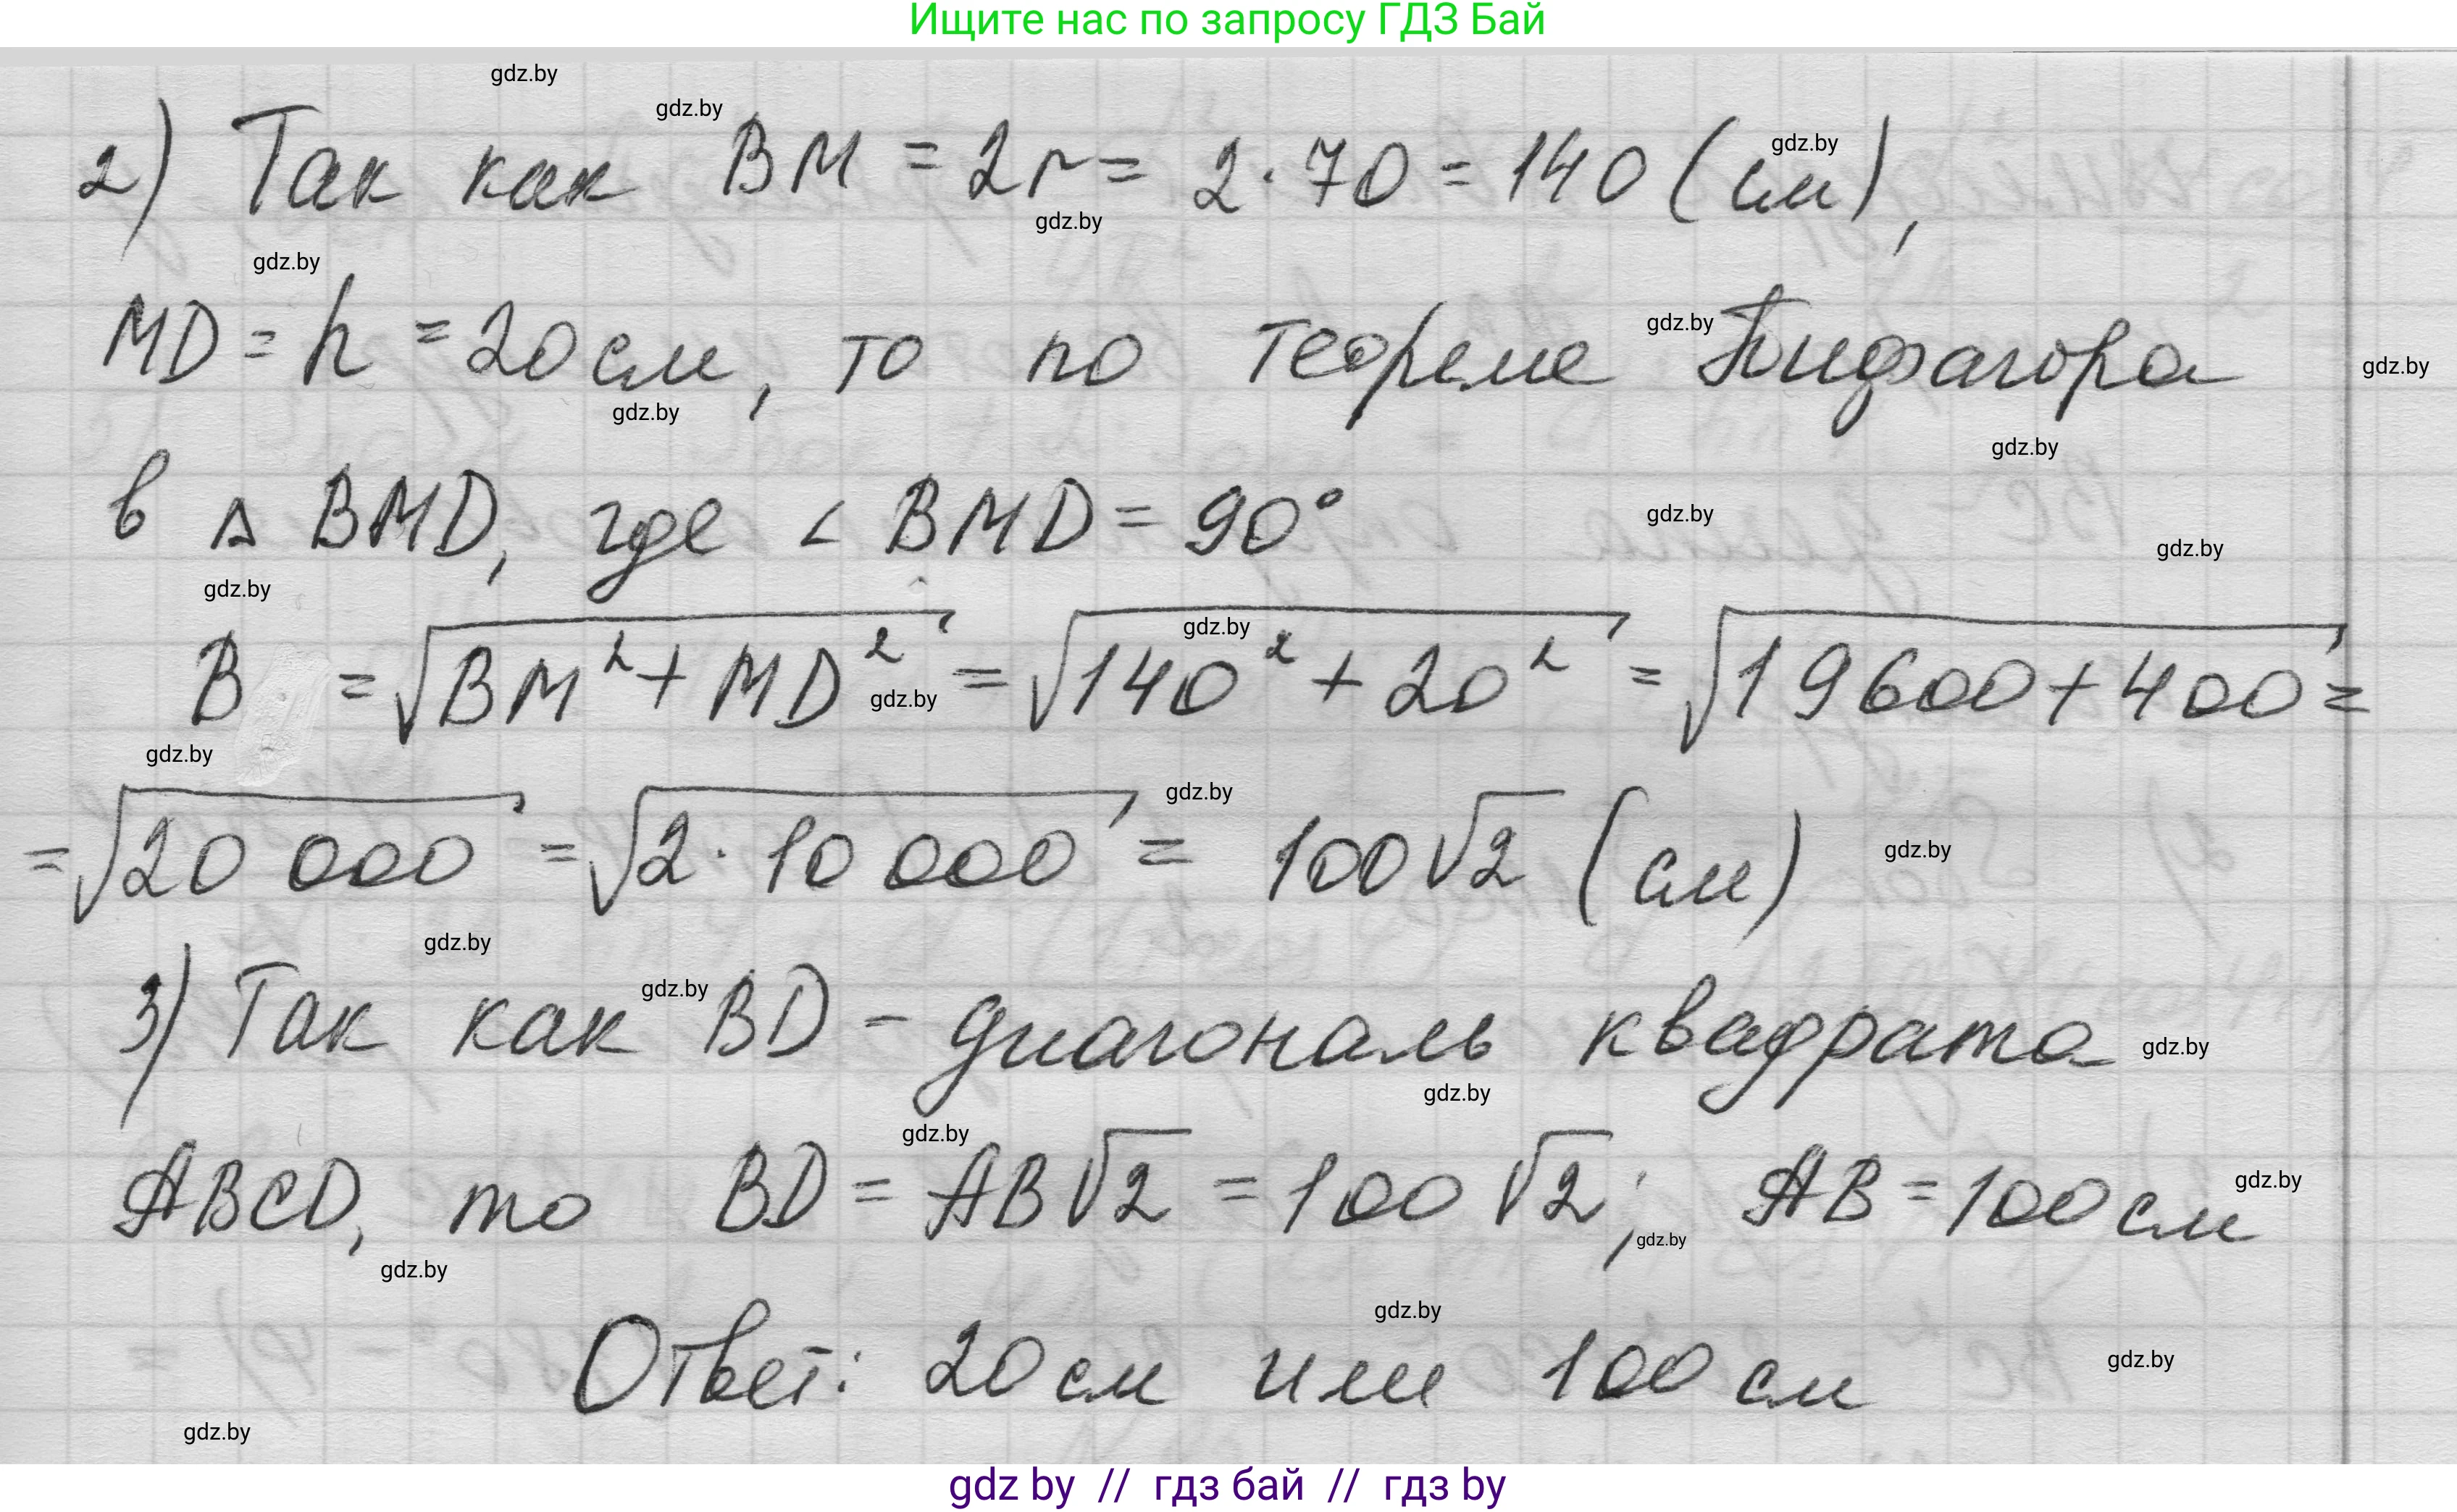 Ищите нас по запросу ГДЗ Бай
gdz.by
gdz.by
2) Так как BM = 2r = 2 · 70 = 140 (см),
gdz.by
gdz.by
gdz.by
MD = h = 20 см, то по теореме Пифагора
gdz.by
gdz.by
gdz.by
gdz.by
в △ BMD, где ∠ BMD = 90°
gdz.by
gdz.by
gdz.by
B = √BM² + MD² = √140² + 20² = √19600 + 400 =
gdz.by
gdz.by
gdz.by
= √20 000 = √2 · 10 000 = 100√2 (см)
gdz.by
gdz.by
gdz.by
3) Так как BD - диагональ квадрата
gdz.by
gdz.by
gdz.by
gdz.by
ABCD, то BD = AB√2 = 100 √2; AB = 100 см
gdz.by
gdz.by
gdz.by
gdz.by
Ответ: 20 см или 100 см
gdz.by
gdz.by
gdz by // гдз бай // гдз by